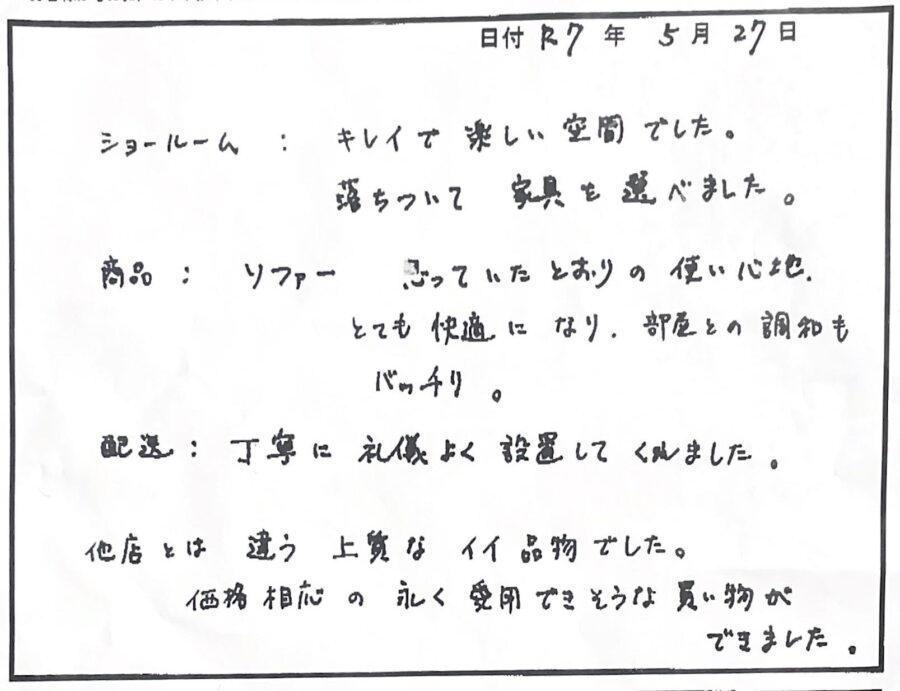 日付 R7 年 5 月 27 日
ショールーム : キレイで 楽しい 空間でした。
落ちついて 家具を 選べました。
商品 : ソファー 思っていたとおりの 使い心地.
とても 快適に なり. 部屋との 調和も
バッチリ 。
配送 : 丁寧に 礼儀よく 設置して くれました 。
他店とは 違う 上質な イイ 品物でした。
価格相応の 永く 愛用できそうな 買い物が
できました 。